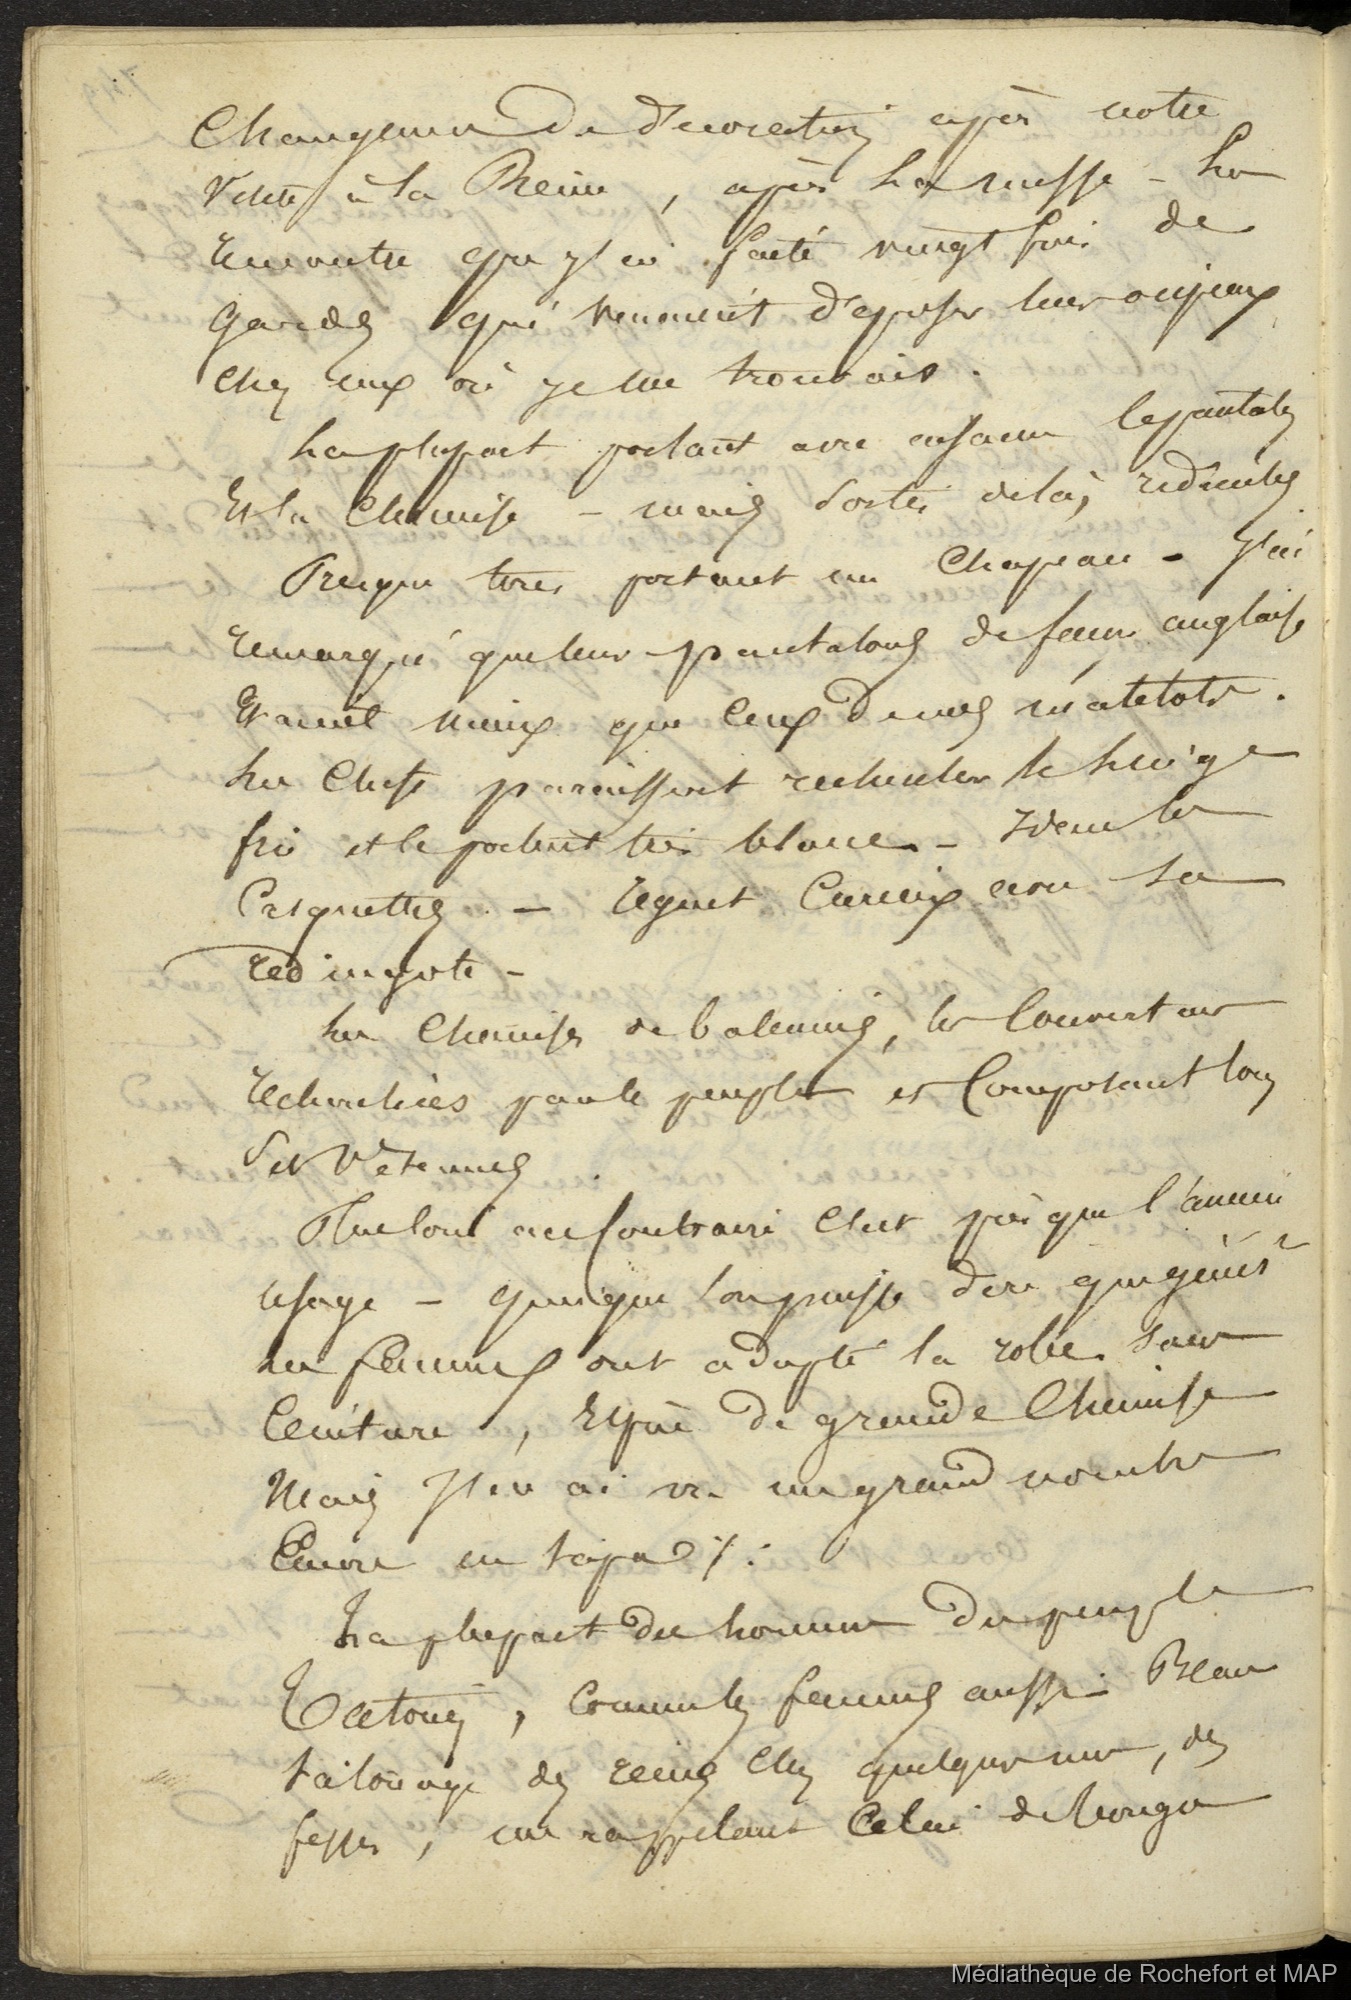 Changemens de décoration après notre
visite à la Reine, après la messe - La
rencontre que j'en faite vingt fois de
gardes qui venoient déposer leurs oripeaux
chez eux où je me trouvois.
La plupart portant avec aisance le pantalon
et la chemise - mais sortis delà, ridicules
Presque tous portent un chapeau - J'ai
remarqué que leurs pantalons de façon anglaise
étaient mieux que ceux de nos matelots.
Les chefs paraissent rechercher le linge
fin et le portent très blanc - Idem les
casquettes - curieux avec sa
redingote -
Les chemises de baleiniers, les couvertures
recherchées par le peuple et composant tous
ses vêtemens.
Plus loin au contraire c'est pis que l'ancien
usage - quoique l'on puisse dire qu'en génér.l
les femmes ont adopté la robe sans
ceinture, espèce de grande chemise
Mais j'en ai vu un grand nombre
encore en tapa %.
La plupart des hommes du peuple
tatoués, comme les femmes aussi Beau
tatouage des reins chez quelques unes, des
fesses, me rappelant celui de Manga
Médiathèque de Rochefort et MAP